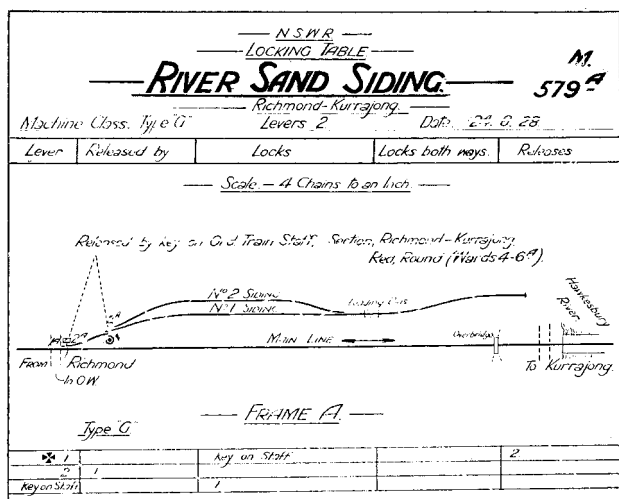 N S W R
LOCKING TABLE
RIVER SAND SIDING.
M.
579A
Richmond-Kurrajong.
Machine Class. Type "G"
Levers 2
Date. 24. 8. 28
Lever
Released by
Locks
Locks both ways.
Releases
Scale. - 4 Chains to an Inch.
Released by key on Ord Train Staff, Section, Richmond-Kurrajong,
Red, Round (Wards 4-6A)
No 2 SIDING
No 1 SIDING
MAIN LINE
Overbridge
Hawkesbury
River
FROM
Richmond
To Kurrajong.
FRAME A.
Type "G"
1
Key on Staff
2
2
1
Key on Staff
1